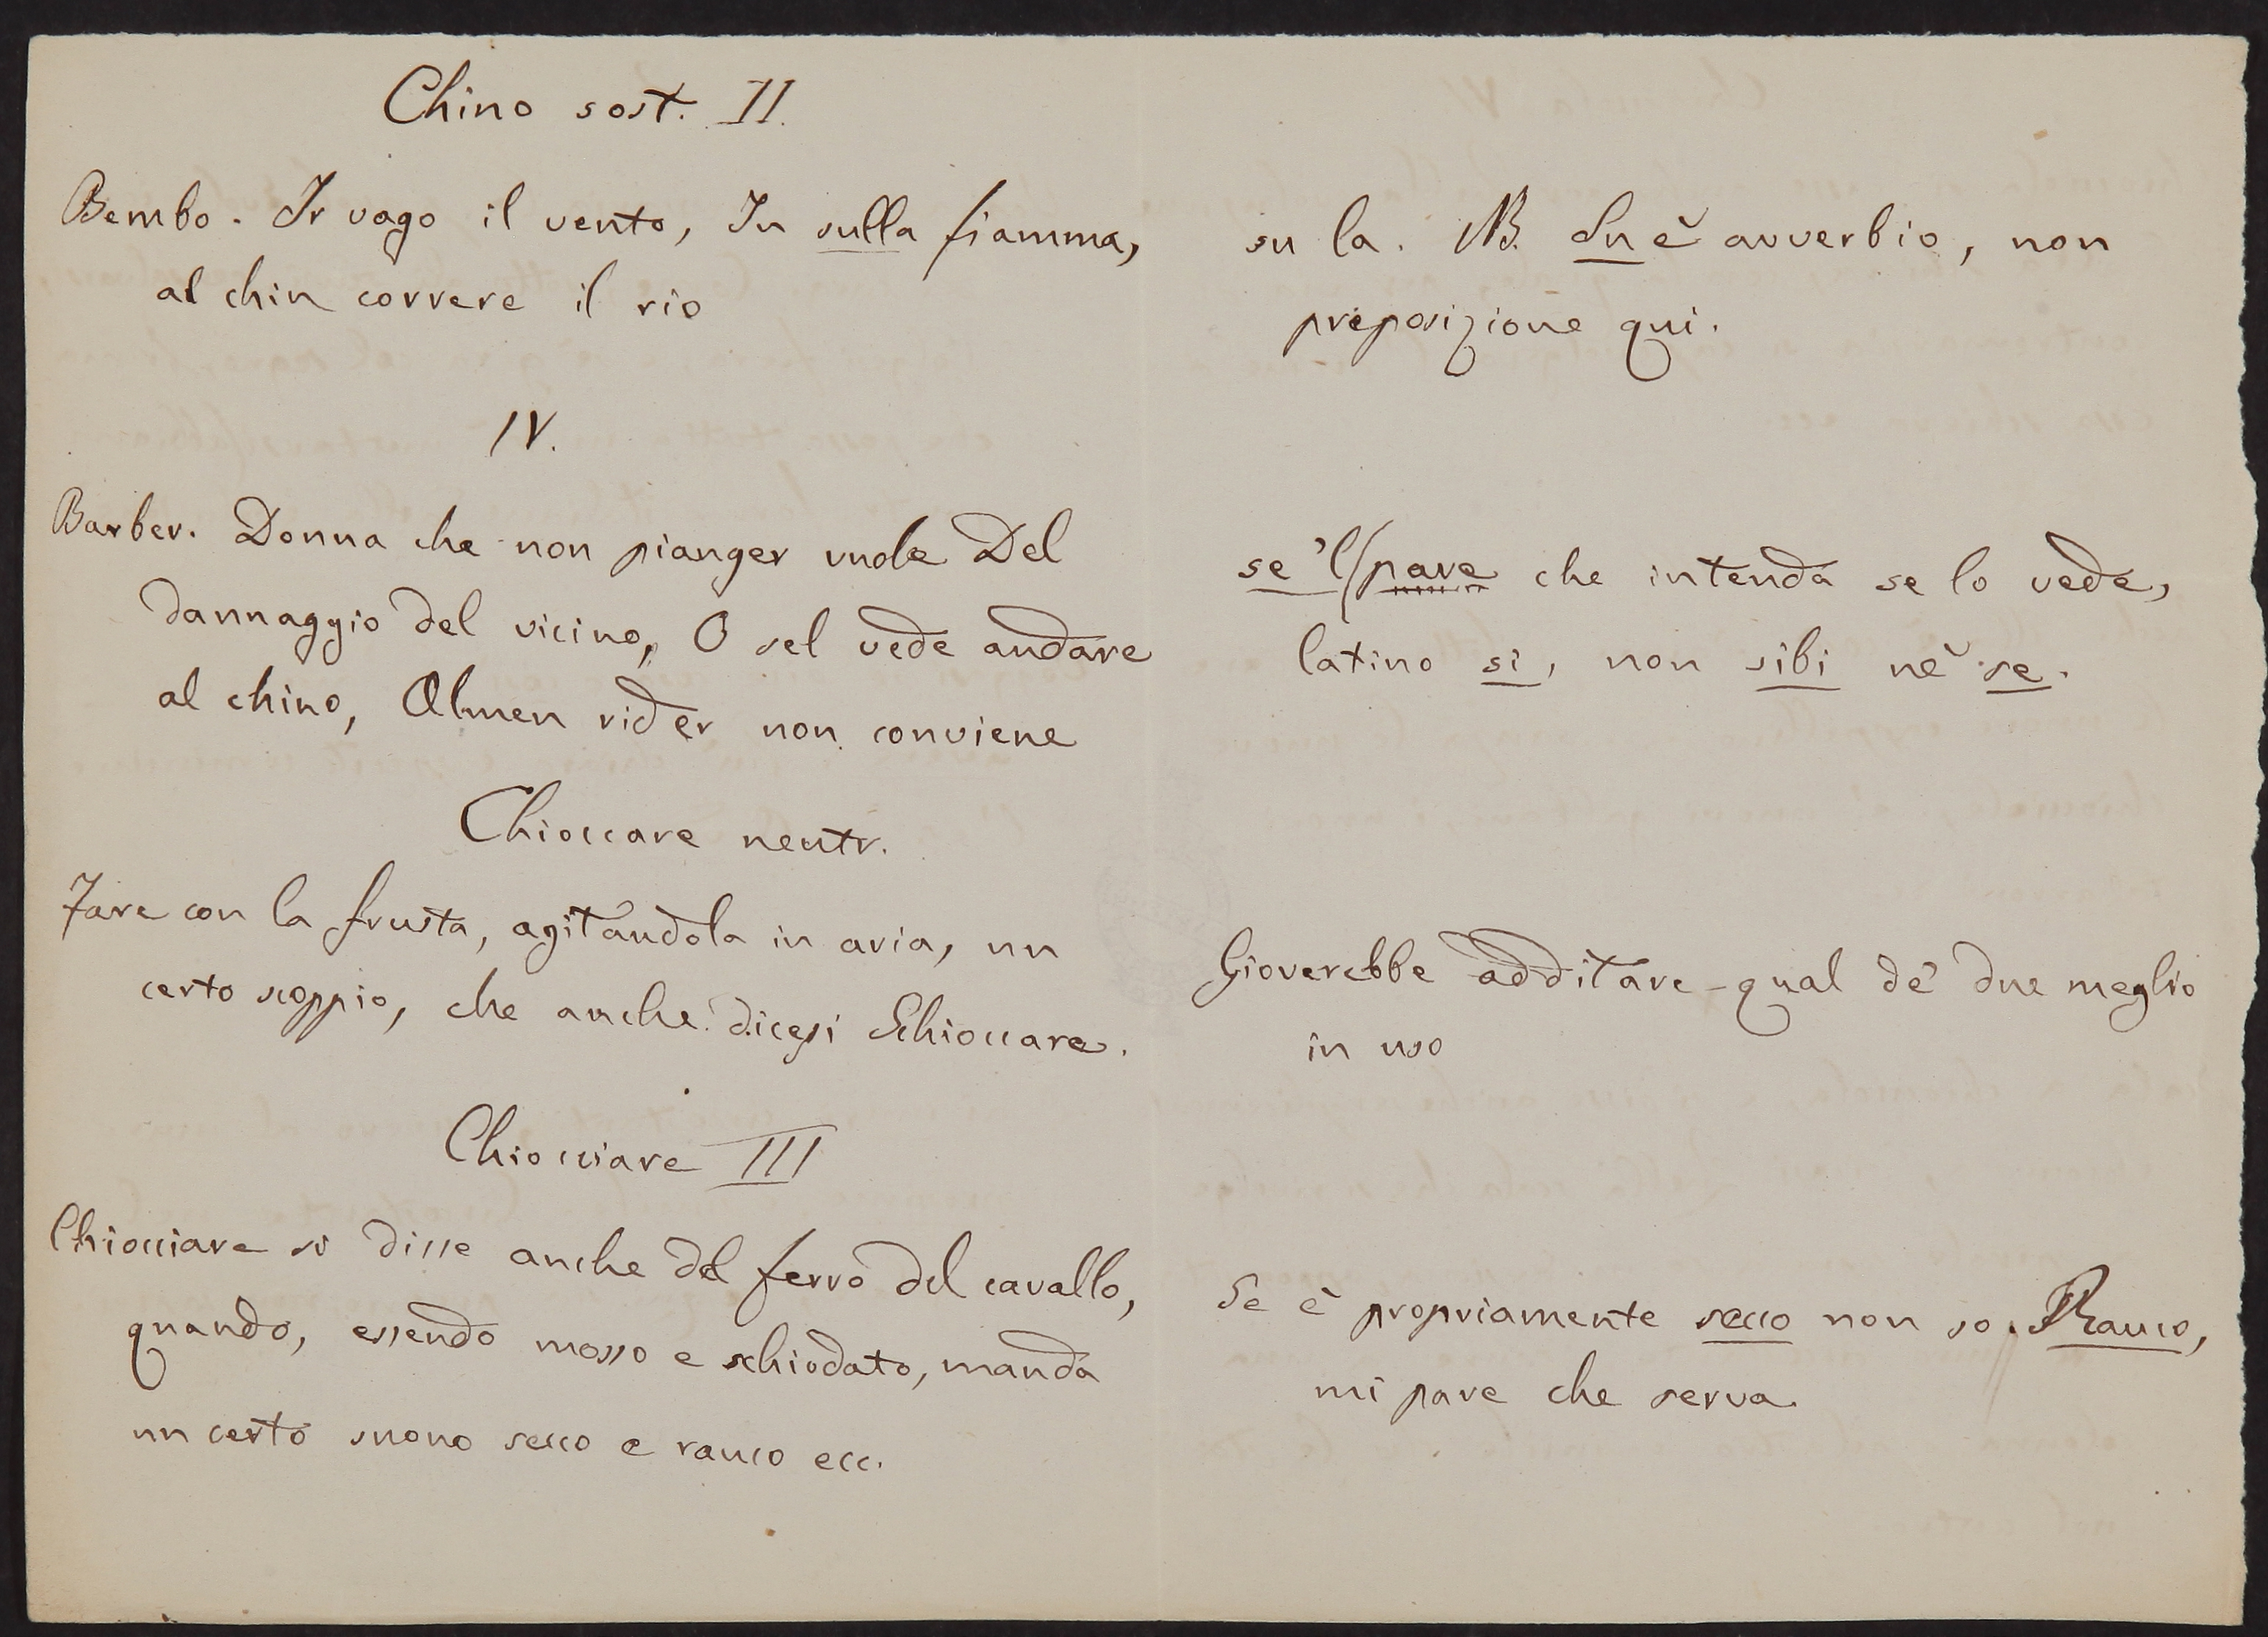 Chino sost. II.
Bembo. Ir vago il vento, In sulla fiamma,
al chin correre il rio
su la. NB. Su è avverbio, non
preposizione qui.
IV.
Barber. Donna che non pianger vuole Del
dannaggio del vicino, O sel vede andare
al chino, Almen rider non conviene
se 'l/pare che intenda se lo vede,
latino si, non sibi nè se.
Chioccare neutr.
Fare con la frusta, agitandola in aria, un
certo scoppio, che anche dicesi Schioccare.
Gioverebbe additare qual de' due meglio
in uso
Chiocciare III
Chiocciare si disse anche del ferro del cavallo,
quando, essendo mosso e schiodato, manda
un certo suono secco e rauco ecc.
Se è propriamente secco non so. Rauco,
mi pare che serva.